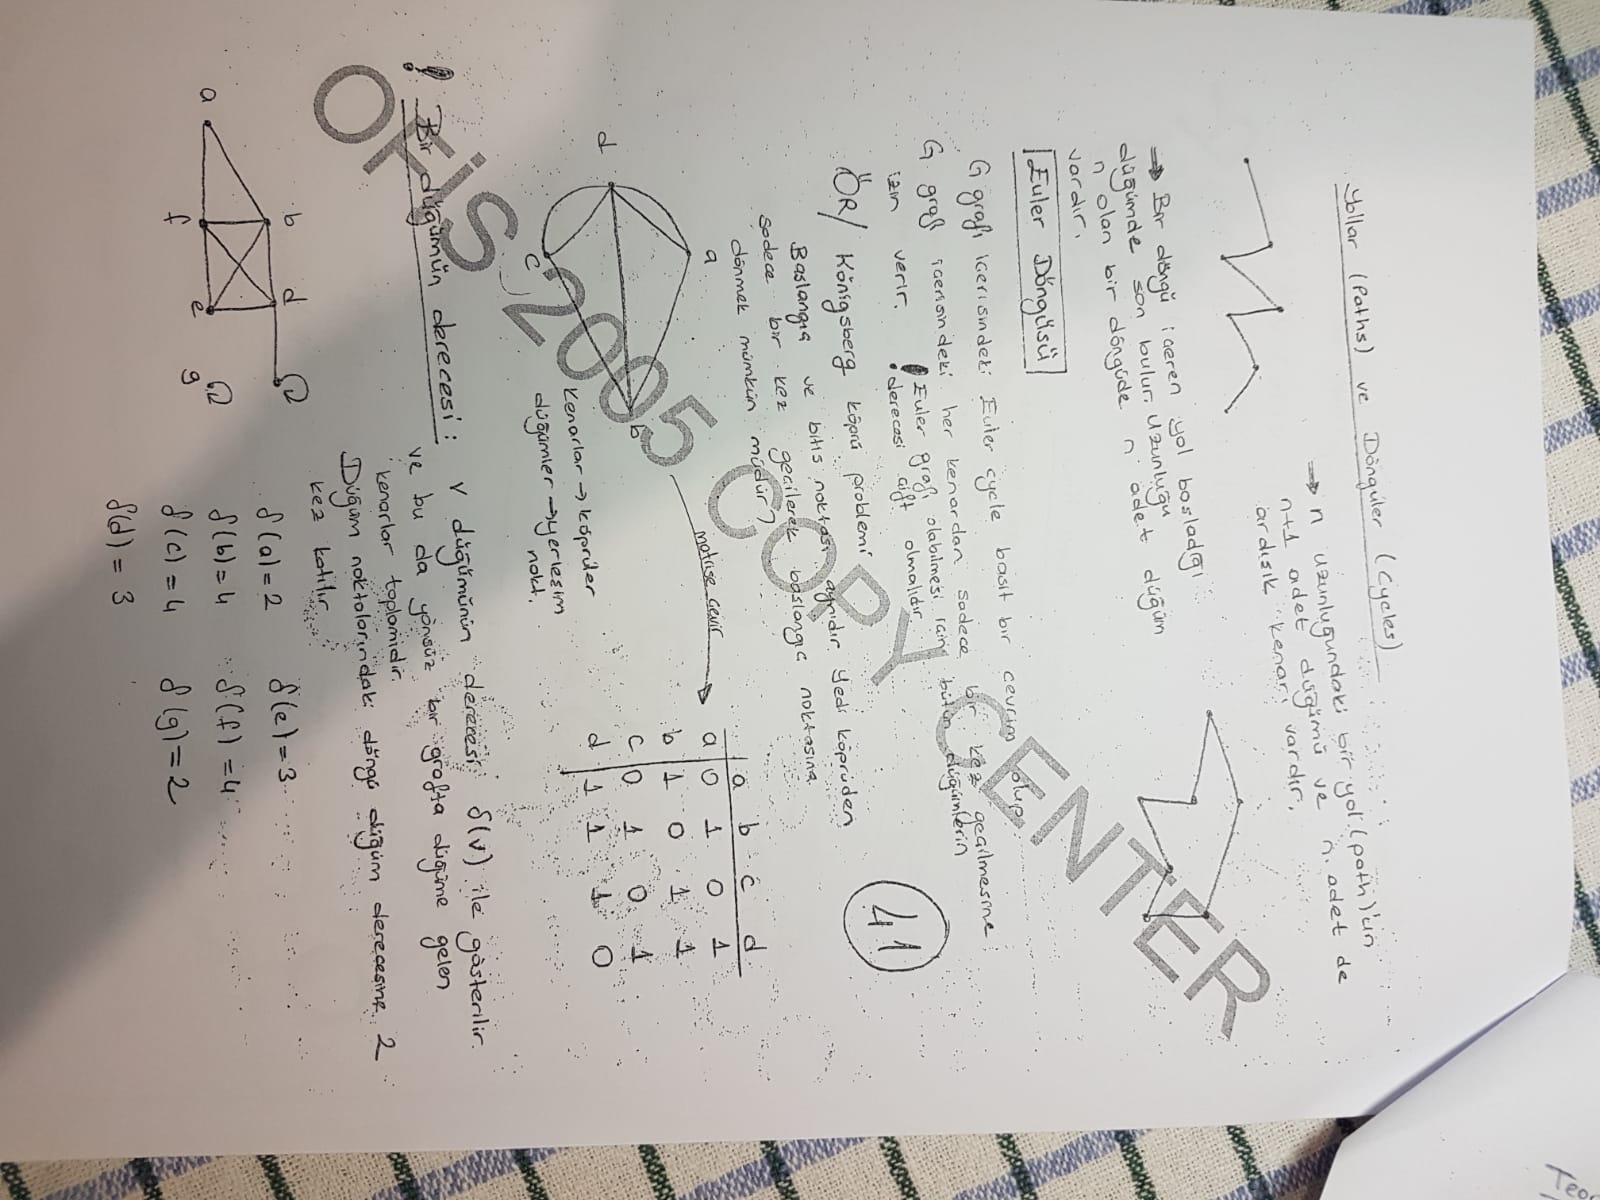 Teo
Yollar (Paths) ve Döngüler (Cycles)
⇒ n uzunluğundaki bir yol (path)'ün
n+1 adet düğümü ve n adet de
ardışık kenarı vardır.
⇒ Bir döngü içeren yol başladığı
düğümde son bulur. Uzunluğu
n olan bir döngüde n adet düğüm
vardır.
Euler Döngüsü
G grafı içerisindeki Euler cycle basit bir çevrim olup
G grafı içerisindeki her kenardan sadece bir kez geçilmesine
izin verir. ! Euler grafı olabilmesi için bütün düğümlerin
derecesi çift olmalıdır
41
ÖR/ Königsberg köprü problemi
Başlangıç ve bitiş noktası aynıdır. Yedi köprüden
sadece bir kez geçilerek başlangıç noktasına
dönmek mümkün müdür?
a
b
c
d
matrise çevir
a b c d
a 0 1 0 1
b 1 0 1 1
c 0 1 0 1
d 1 1 1 0
Kenarlar → köprüler
düğümler → yerleşim
nokt.
! Bir düğümün derecesi: v düğümünün derecesi δ(v) ile gösterilir.
ve bu da yönsüz bir grafta düğüme gelen
kenarlar toplamidir.
Düğüm noktalarındaki döngü düğüm derecesine 2
kez katılır.
b d
a f e g
δ(a)=2 δ(e)=3
δ(b)=4 δ(f)=4
δ(c)=4 δ(g)=2
δ(d)=3
OFİS 2005 COPY CENTER